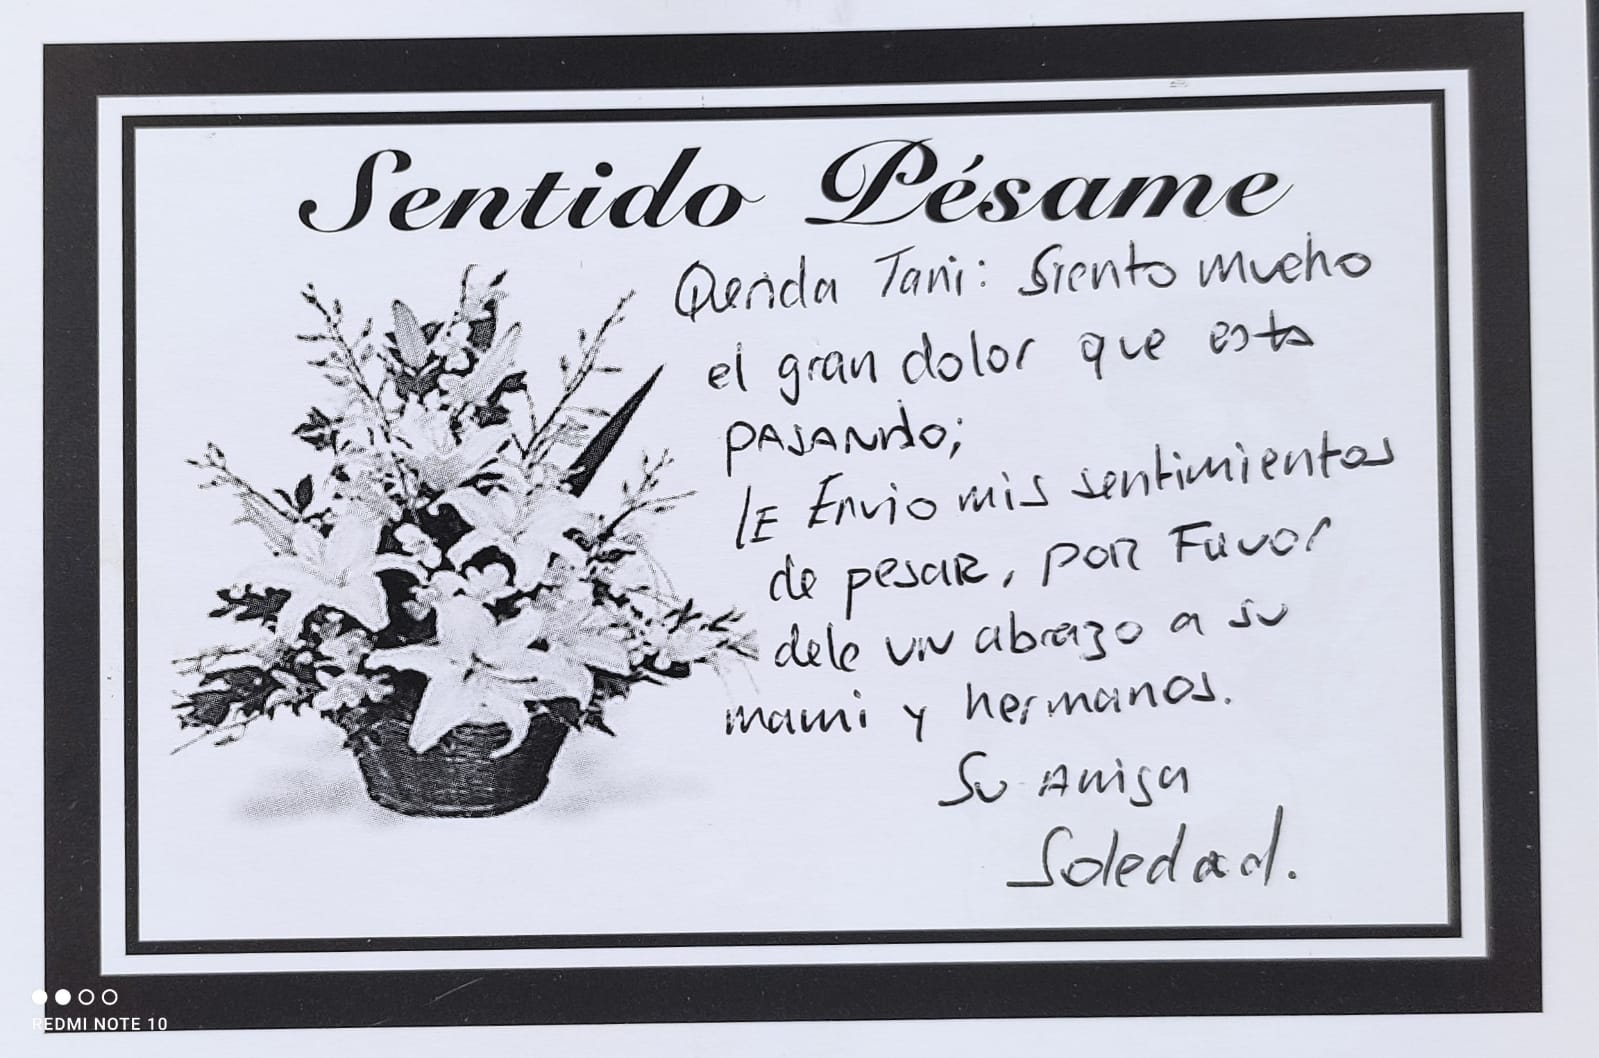 Sentido Pésame
Querida Tani: Siento mucho
el gran dolor que esta
PASANdo;
lE Envio mis sentimientos
de pesaR, poR Favor
dele uN abrazo a su
mami y hermanos.
Su Amiga
Soledad.
REDMI NOTE 10